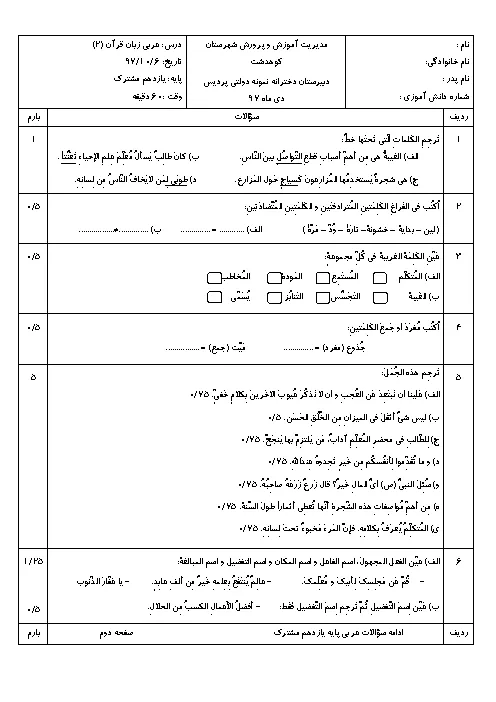 نام :
نام خانوادگی:
نام پدر :
شماره دانش آموزی :
مدیریت آموزش و پرورش شهرستان
کوهدشت
دبیرستان دخترانه نمونه دولتی پردیس
دی ماه ۹۷
درس: عربی زبان قرآن (۲)
تاریخ: ۹۷/۱۰/۶
پایه: یازدهم مشترک
وقت :۶۰ دقیقه
ردیف سؤالات بارم
۱ تَرجِمِ الکَلماتِ الَّتی تَحتَها خطٌّ: ۱
الف) الغَیبةُ هی مِن أهمِّ أسبابِ قطعِ التَّواصُلِ بینَ النّاسِ. ب) کانَ طالبٌ یَسألُ مُعَلِّمَ عِلمِ الإحیاءِ تَعَنُّتاً.
ج) هی شجرةٌ یَستَخدِمُها المُزارعونَ کَسیاجٍ حَولَ المَزارِعِ. د) طوبَی لِمَن لایَخافُ النّاسُ مِن لِسانِهِ.
۲ اُکتُب فی الفَراغِ الکَلِمَتینِ المُتَرادِفَتَینِ و الکَلِمَتینِ المُتَضادَّتَینِ: ۰/۵
( لین – بدایة – خشونة – تارَةً – وُدّ – مَرَّةً ) الف) ........... = ............. ب) ..............≠...............
۳ عَیِّنِ الکَلِمَةَ الغَریبةَ فی کُلِّ مجموعةٍ: ۰/۵
الف) المُتکَلِّم المُستَمِع المَودة المُخاطَب
ب) الغَیبة التَجَسُّس التَنابُز یُسَمَّی
۴ اُکتُب مُفرَدَ أو جَمعَ الکَلِمَتَینِ: ۰/۵
جُذوع (مفرد) = ............... مَیّت (جمع) = ................
۵ تَرجِم هذه الجُمَلَ: ۵
الف) عَلَینا أن نَبتَعِدَ عَنِ العُجبِ و أن لا نَذکُرَ عُیوبَ الآخَرینَ بِکَلامٍ خَفیٍّ. ۰/۷۵
ب) لیس شیءٌ أثقَلَ فی المیزانِ مِن الخُلُقِ الحَسَنِ. ۰/۵
ج) لِلطّالِبِ فی مَحضَرِ المُعَلِّمِ آدابٌ، مَن یَلتَزِمْ بِها یَنجَحْ. ۰/۷۵
د) و ما تُقَدِّموا لِأنفُسِکُم مِن خَیرٍ تَجِدوهُ عِندَاللهِ. ۰/۷۵
و) سُئِلَ النبیُّ (ص) أیُّ المالِ خَیرٌ؟ قالَ زَرعٌ زَرَعَهُ صاحِبُهُ. ۰/۷۵
ه) مِن أهمِّ مُواصِفاتِ هذه الشَّجَرةِ أنَّها تُعطی أثماراً طولَ السَّنَةِ. ۰/۷۵
ی) المُتکلِّمُ یُعرَفُ بِکَلامِهِ. فَإنَّ المَرءَ مَخبوءٌ تحتَ لِسانِهِ. ۰/۷۵
۶ الف) عَیِّنِ الفعل المجهول، اسم الفاعل و اسم المکان و اسم التفضیل و اسم المبالغة: ۱/۲۵
– قُم عَن مَجلِسِکَ لِأبیکَ و مُعَلِّمِکَ. – عالِمٌ یُنتَفَعُ بِعِلمِهِ خَیرٌ مِن ألفِ عابِدٍ. – یا غَفّارَ الذُّنوبِ
ب) عَیِّنِ اسمَ التَّفضیلِ ثُمَّ تَرجِم اسمَ التَّفضیلِ فَقَط: – أفضَلُ الأعمالِ الکَسبُ مِن الحَلالِ. ۰/۵
ردیف ادامه سؤالات عربی پایه یازدهم مشترک صفحه دوم بارم